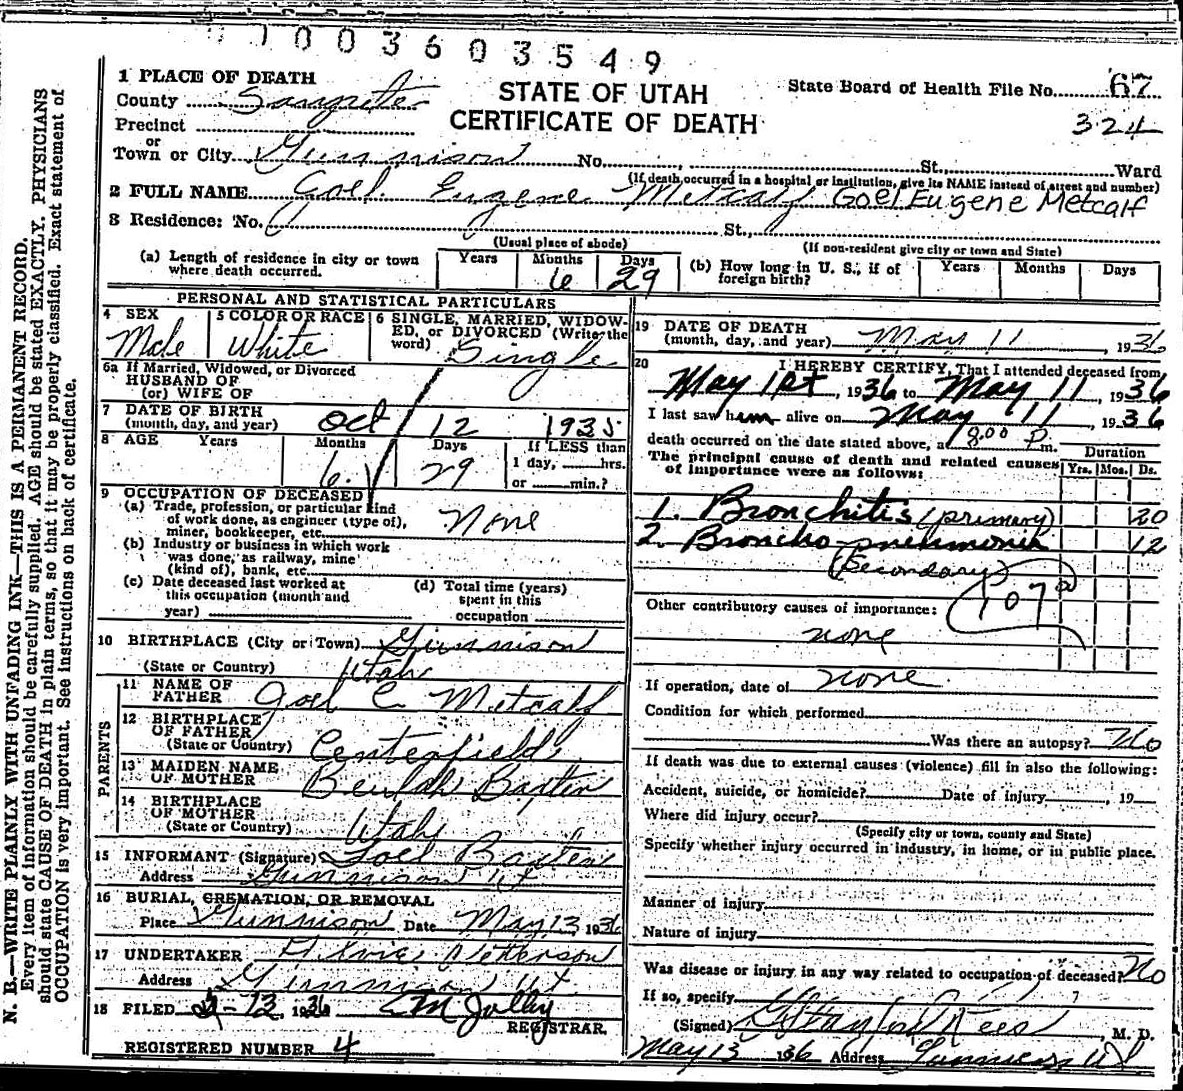 7 0 0 3 6 0 3 5 4 9
1 PLACE OF DEATH
County Sanpete
STATE OF UTAH
CERTIFICATE OF DEATH
State Board of Health File No. 67
324
Precinct
or
Town or City Gunnison No. , St., Ward
(If death occurred in a hospital or institution, give its NAME instead of street and number)
2 FULL NAME Goel Eugene Metcalf Goel Eugene Metcalf
3 Residence: No. St.,
(Usual place of abode) (If non-resident give city or town and State)
(a) Length of residence in city or town where death occurred. Years Months 6 Days 29
(b) How long in U. S., if of foreign birth? Years Months Days
PERSONAL AND STATISTICAL PARTICULARS
4 SEX Male
5 COLOR OR RACE White
6 SINGLE, MARRIED, WIDOW-
ED, or DIVORCED (Write the
word) Single
6a If Married, Widowed, or Divorced
HUSBAND OF
(or) WIFE OF
7 DATE OF BIRTH
(month, day, and year) Oct 12 1935
8 AGE Years Months Days If LESS than
6 29 1 day, hrs.
or min.?
9 OCCUPATION OF DECEASED
(a) Trade, profession, or particular kind
of work done, as engineer (type of),
miner, bookkeeper, etc. None
(b) Industry or business in which work
was done, as railway, mine
(kind of), bank, etc.
(c) Date deceased last worked at
this occupation (month and
year)
(d) Total time (years)
spent in this
occupation
10 BIRTHPLACE (City or Town) Gunnison
(State or Country) Utah
PARENTS
11 NAME OF
FATHER Goel C Metcalf
12 BIRTHPLACE
OF FATHER
(State or Country) Centerfield
13 MAIDEN NAME
OF MOTHER Beulah Baxter
14 BIRTHPLACE
OF MOTHER
(State or Country) Utah
15 INFORMANT (Signature) Goel Baxter
Address Gunnison Ut
16 BURIAL, CREMATION, OR REMOVAL
Place Gunnison Date May 13 1936
17 UNDERTAKER
Address Gunnison Ut
18 FILED 1936 EM Jolley
REGISTRAR.
REGISTERED NUMBER 4
19 DATE OF DEATH
(month, day, and year) May 11, 1936
20 I HEREBY CERTIFY, That I attended deceased from
May 1st, 1936 to May 11, 1936
I last saw him alive on May 11, 1936
death occurred on the date stated above, at 8:00 P.m.
The principal cause of death and related causes
of importance were as follows:
Duration
Yrs. Mos. Ds.
1. Bronchitis (primary) 20
2. Broncho pneumonia 12
(Secondary)
107a
Other contributory causes of importance:
none
If operation, date of none
Condition for which performed
Was there an autopsy? No
If death was due to external causes (violence) fill in also the following:
Accident, suicide, or homicide? Date of injury , 19
Where did injury occur?
(Specify city or town, county and State)
Specify whether injury occurred in industry, in home, or in public place.
Manner of injury
Nature of injury
Was disease or injury in any way related to occupation of deceased? No
If so, specify
(Signed) M. D.
May 13 1936 Address Gunnison Ut
N. B.—WRITE PLAINLY WITH UNFADING INK—THIS IS A PERMANENT RECORD.
Every item of information should be carefully supplied. AGE should be stated EXACTLY. PHYSICIANS
should state CAUSE OF DEATH in plain terms, so that it may be properly classified. Exact statement of
OCCUPATION is very important. See instructions on back of certificate.